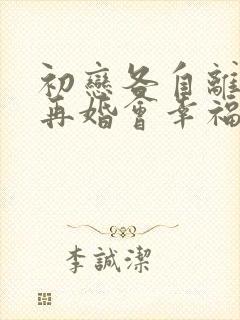 初戀各自離
再婚會幸福
李誠潔